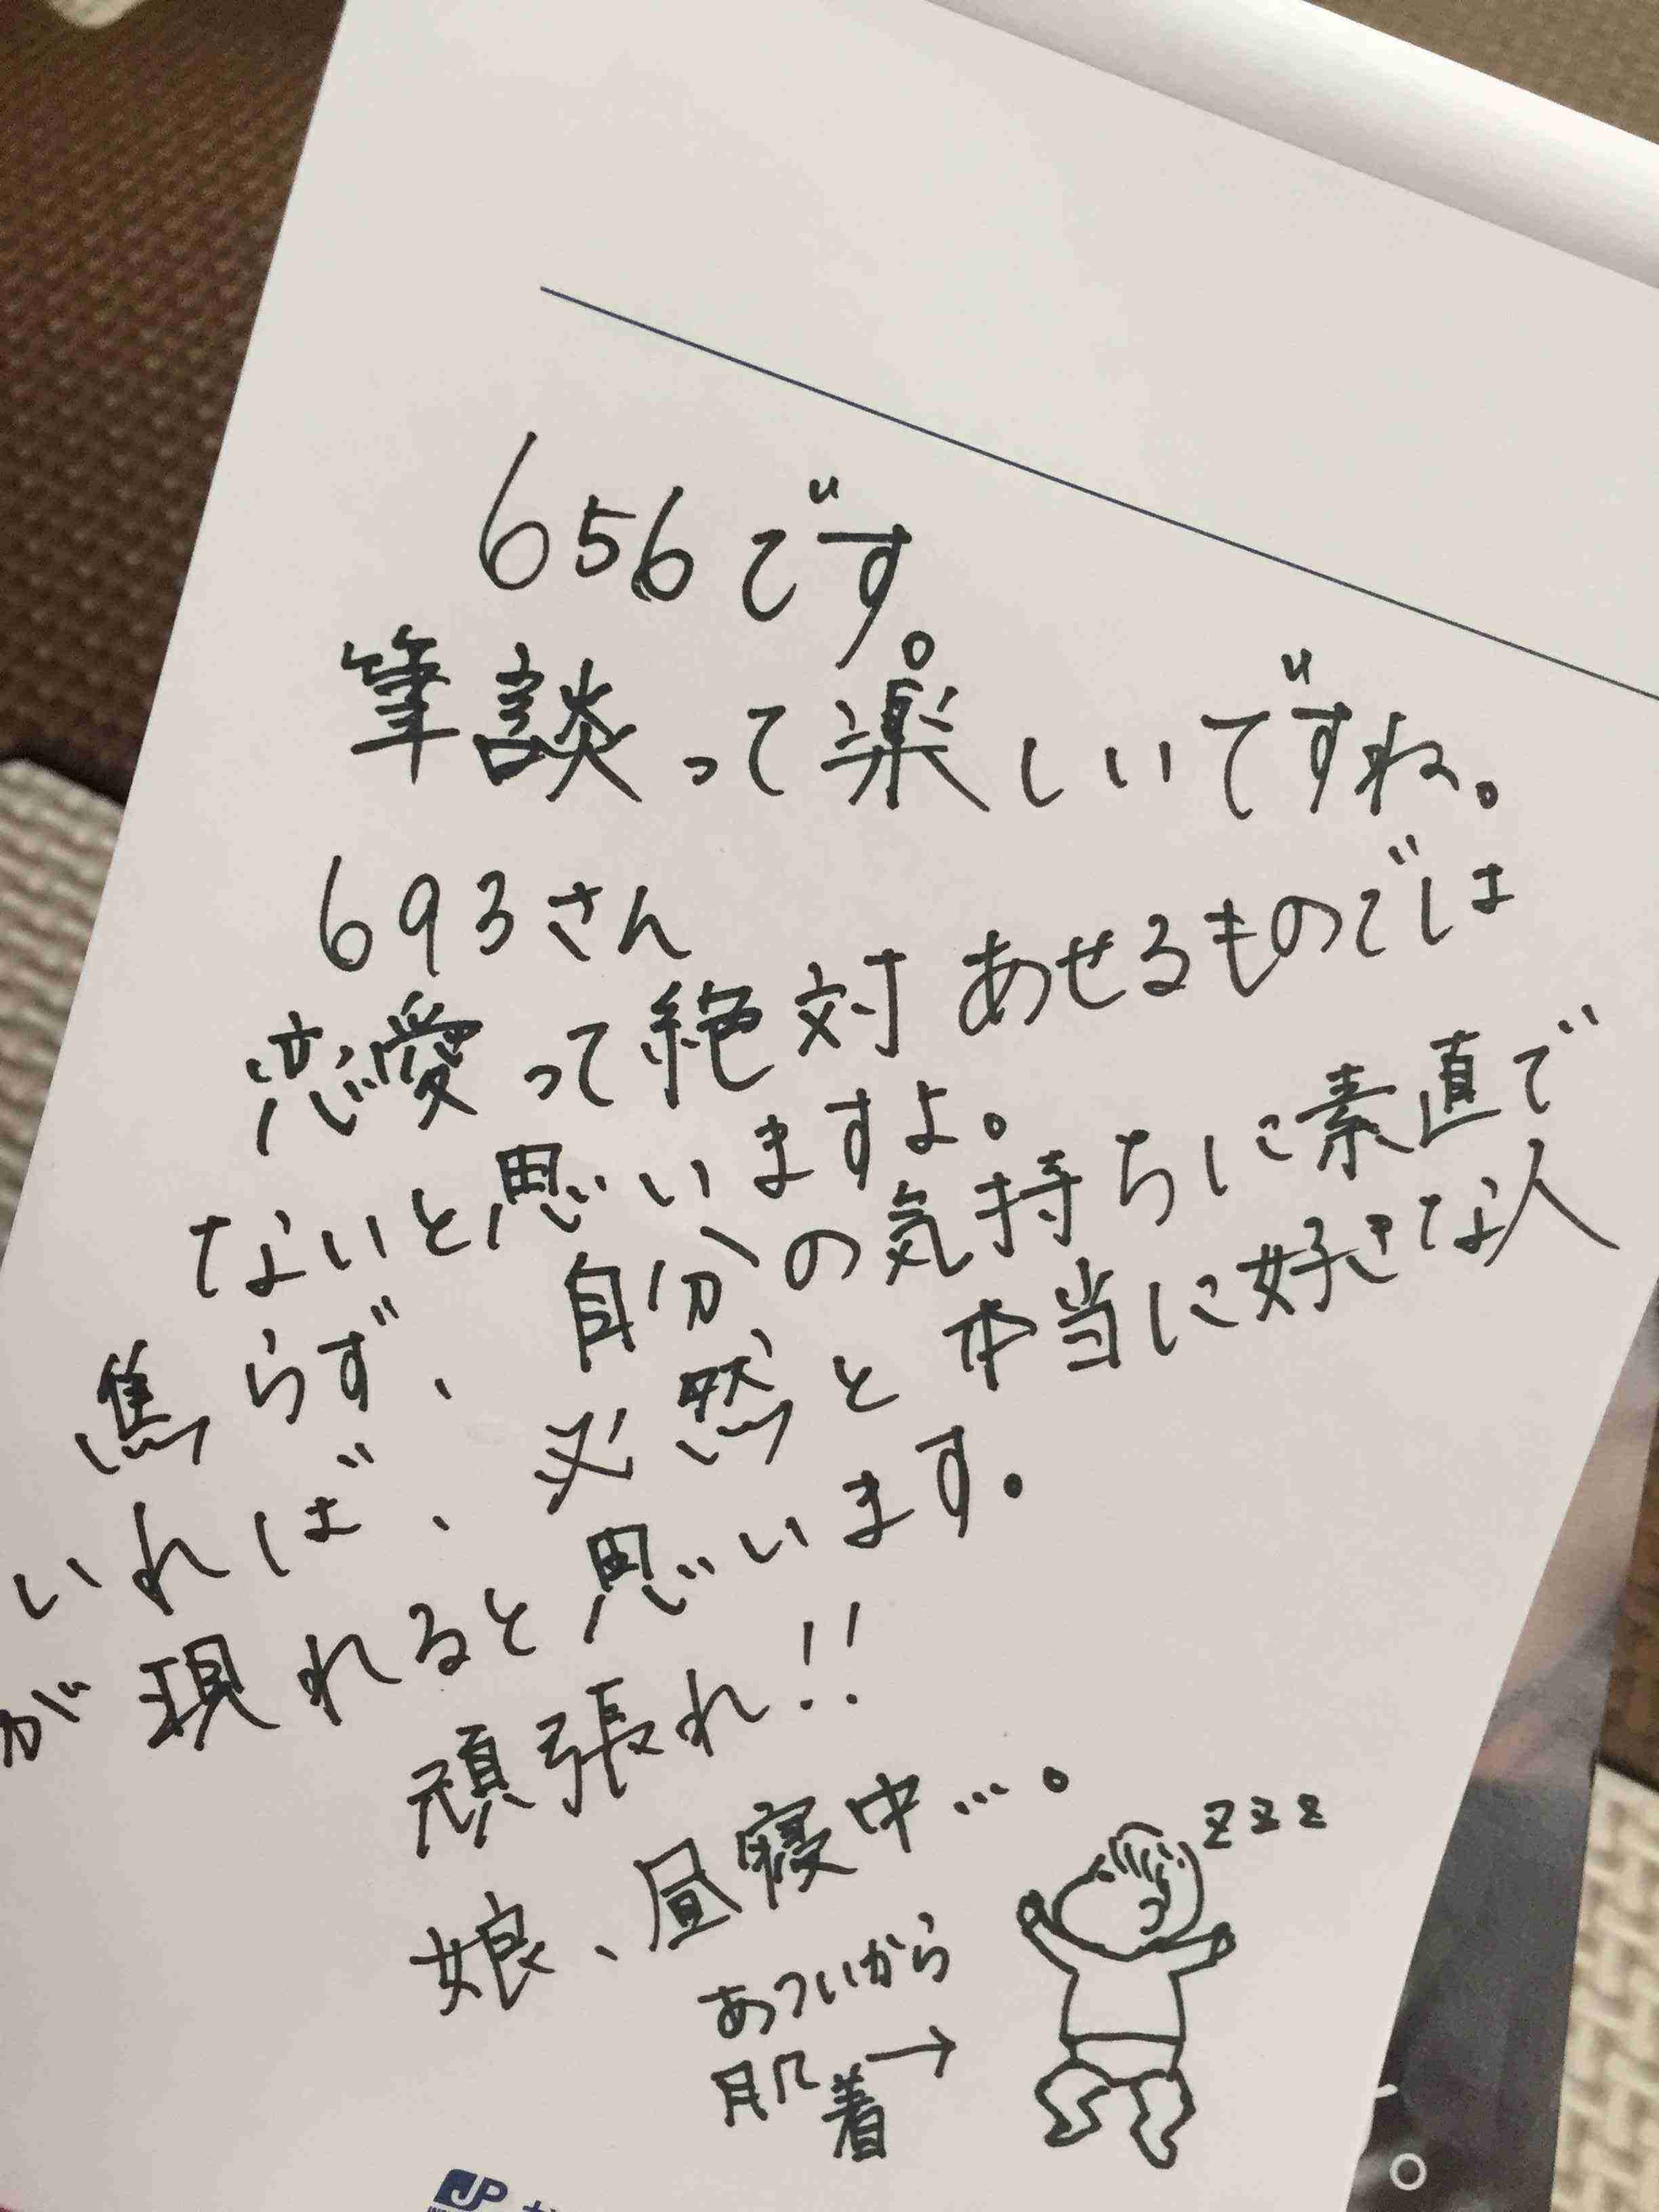 656です。
筆談って楽しいですね。
693さん
恋愛って絶対あせるものでは
ないと思いますよ。
焦らず、自分の気持ちに素直で
いれば、必然と本当に好きな人
が現れると思います。
頑張れ!!
娘、昼寝中…。
zzz
あついから
肌着→
JP